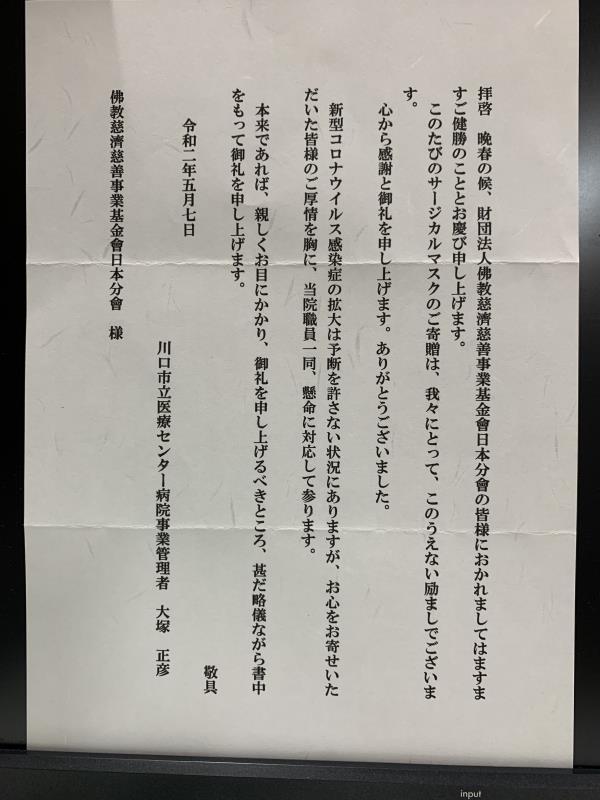 拝啓　晩春の候、財団法人佛教慈濟慈善事業基金會日本分會の皆様におかれましてはますま
すご健勝のこととお慶び申し上げます。
このたびのサージカルマスクのご寄贈は、我々にとって、このうえない励ましでございま
す。
心から感謝と御礼を申し上げます。ありがとうございました。
新型コロナウイルス感染症の拡大は予断を許さない状況にありますが、お心をお寄せいた
だいた皆様のご厚情を胸に、当院職員一同、懸命に対応して参ります。
本来であれば、親しくお目にかかり、御礼を申し上げるべきところ、甚だ略儀ながら書中
をもって御礼を申し上げます。
敬具
令和二年五月七日
川口市立医療センター病院事業管理者　大塚　正彦
佛教慈濟慈善事業基金會日本分會　様
input